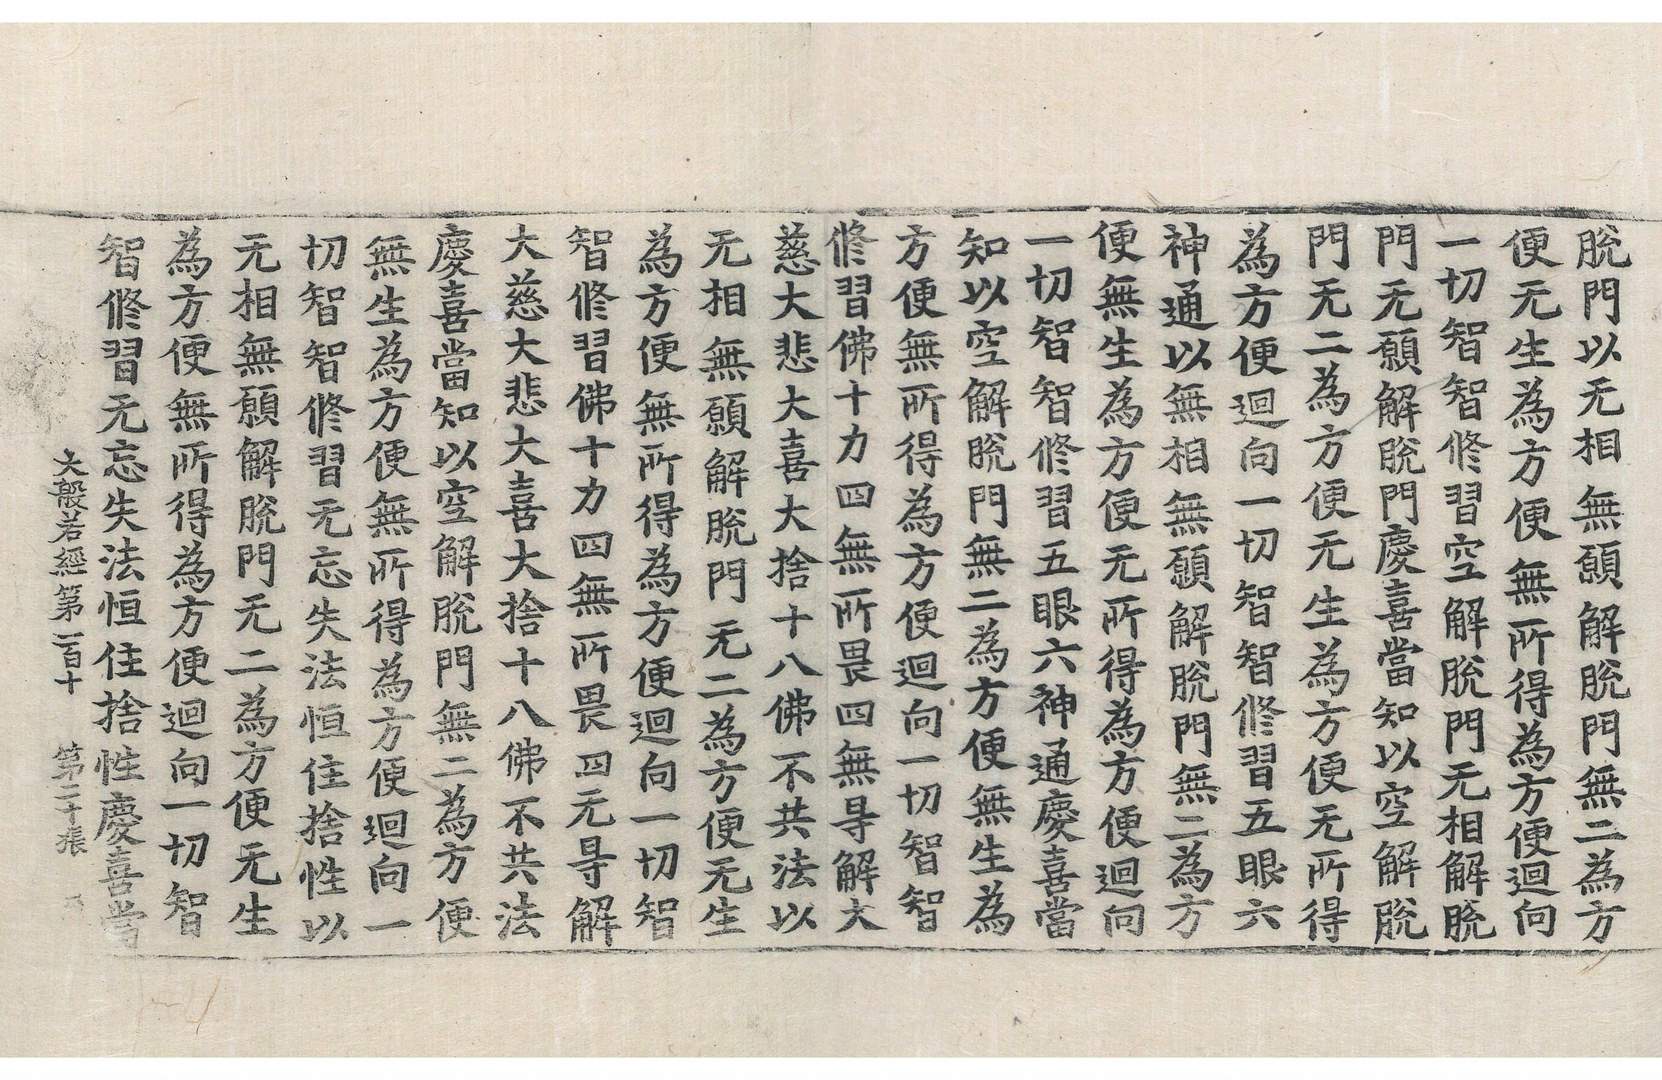 脫門以无相無願解脫門無二為方
便无生為方便無所得為方便迴向
一切智智修習空解脫門无相解脫
門无願解脫門慶喜當知以空解脫
門无二為方便无生為方便无所得
為方便迴向一切智智修習五眼六
神通以無相無願解脫門無二為方
便無生為方便无所得為方便迴向
一切智智修習五眼六神通慶喜當
知以空解脫門無二為方便無生為
方便無所得為方便迴向一切智智
修習佛十力四無所畏四無㝵解大
慈大悲大喜大捨十八佛不共法以
无相無願解脫門无二為方便无生
為方便無所得為方便迴向一切智
智修習佛十力四無所畏四无㝵解
大慈大悲大喜大捨十八佛不共法
慶喜當知以空解脫門無二為方便
無生為方便無所得為方便迴向一
切智智修習无忘失法恒住捨性以
无相無願解脫門无二為方便无生
為方便無所得為方便迴向一切智
智修習无忘失法恒住捨性慶喜當
大般若經第一百十 第二十張